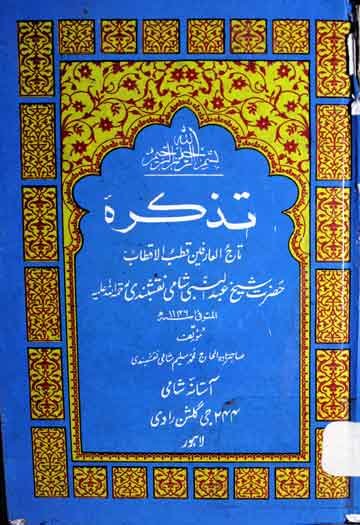 بسم الله الرحمن الرحيم
تذکرہ
تاج العارفین قطب الاقطاب
حضرت شیخ عبد النبی شامی نقشبندی رحمۃ اللہ علیہ
المتوفی ۱۱۴۶ھ
مؤلف
صاحبزادہ الحاج محمد سلیم شامی نقشبندی
آستانہ شامی
۲۴۴ جی گلشن راوی
لاہور